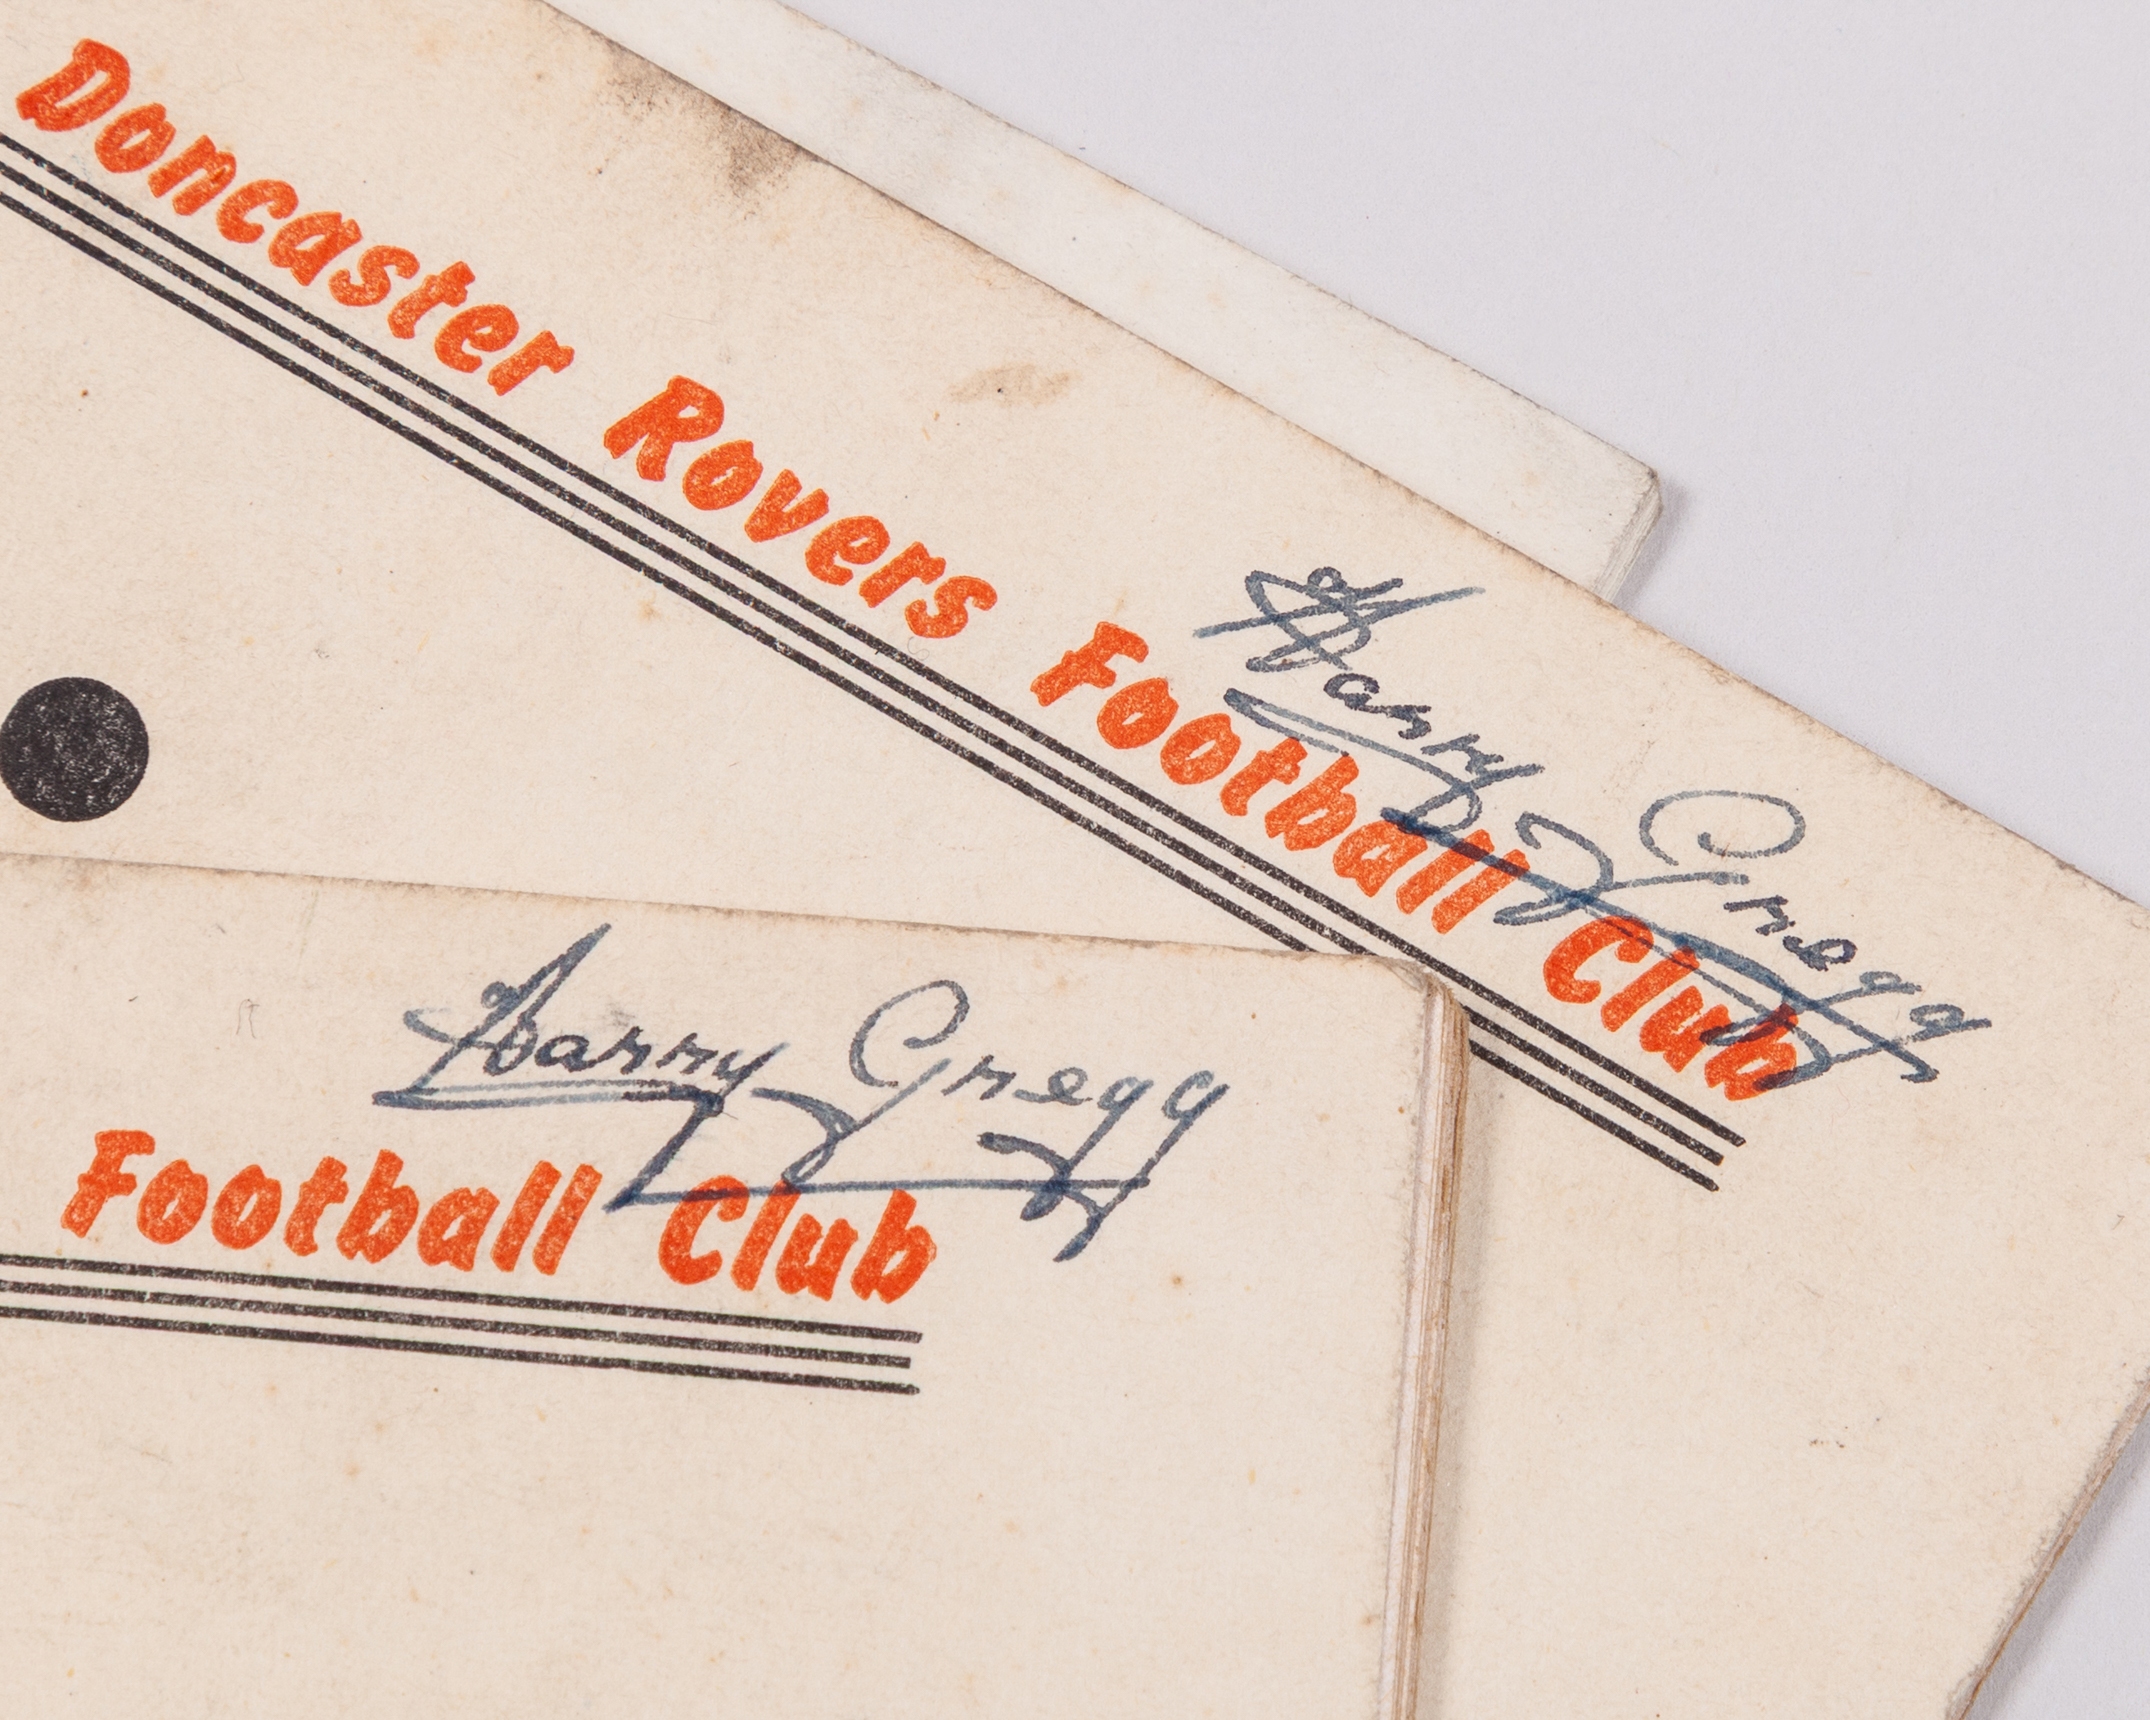 Doncaster Rovers Football Club
Harry Gregg
Harry Gregg
Football Club